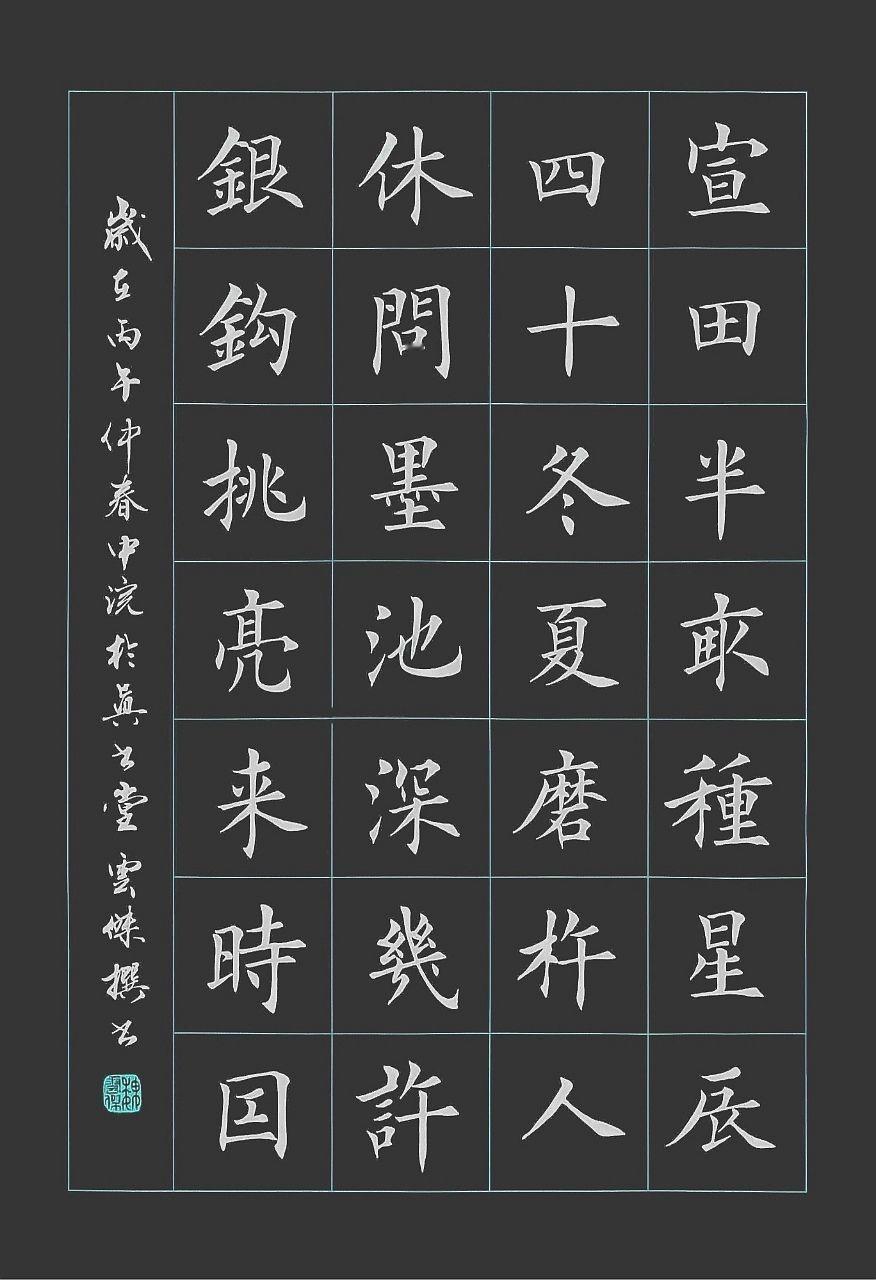 宣田半畝種星辰
四十冬夏磨杵人
休問墨池深幾許
銀鈎挑亮来時囙
歲在丙午仲春中浣於真书堂雲傑撰书